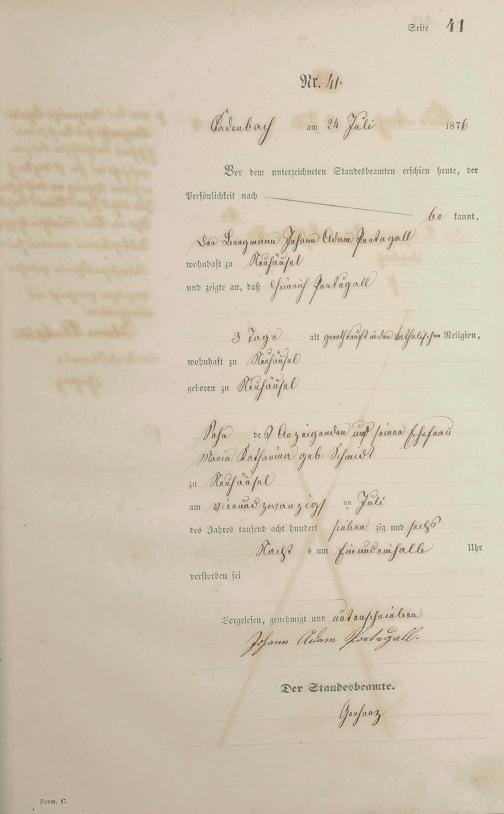 Seite 41
Nr. 41.
Cadenbach am 24 Juli 1876
Vor dem unterzeichneten Standesbeamten erschien heute, der
Persönlichkeit nach
be kannt,
Der Bergmann Johann Adam Portugall
wohnhaft zu Neuhäusel
und zeigte an, daß Heinrich Portugall
3 Tage alt katholischer Religion,
wohnhaft zu Neuhäusel
geboren zu Neuhäusel
Sohn des Anzeigenden und seiner Ehefrau
Maria Katharina geb. Schmidt
zu Neuhäusel
am vierundzwanzigst en Juli
des Jahres tausend acht hundert sieben zig und sechs
Nacht s um Uhr
verstorben sei
Vorgelesen, genehmigt und unterschrieben
Johann Adam Portugall.
Der Standesbeamte.
Form. C.